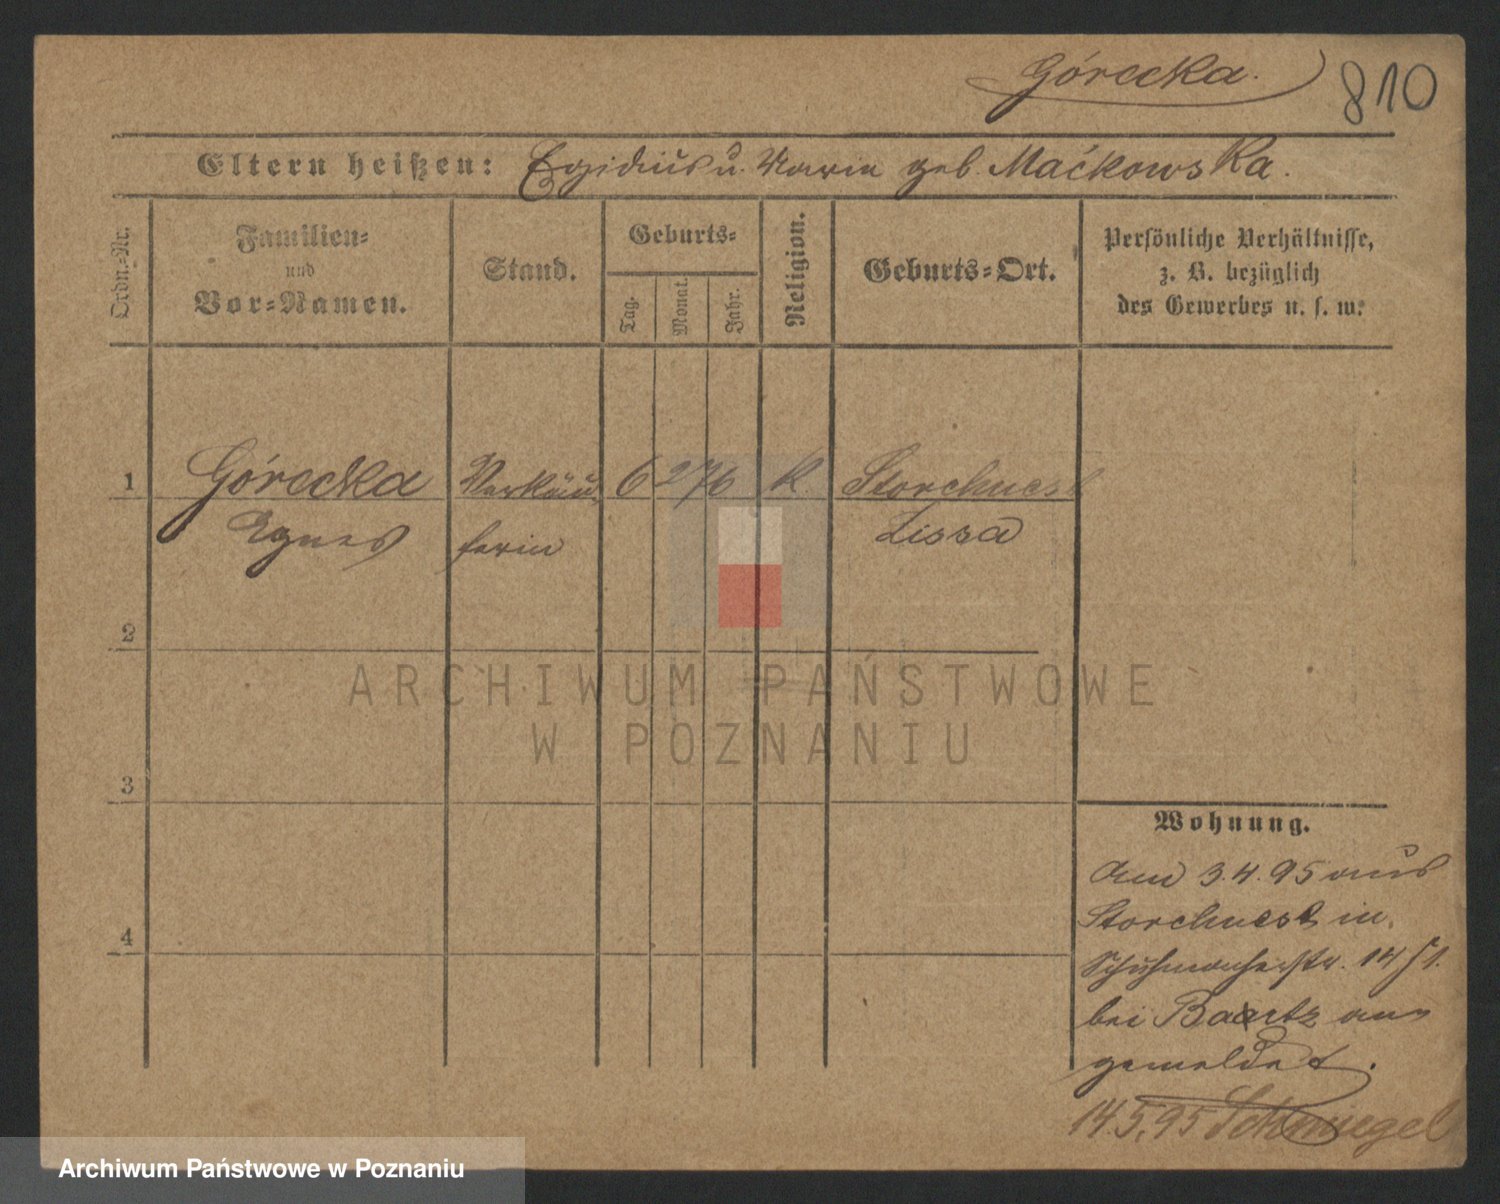 Górecka.
810
Eltern heißen: Egidius u. Maria geb. Maćkowska.
Ordn.-Nr.
Familien-
und
Vor-Namen.
Stand.
Geburts-
Tag.
Monat.
Jahr.
Religion.
Geburts-Ort.
Persönliche Verhältnisse,
z. B. bezüglich
des Gewerbes u. s. w.
1 Górecka Verkäu- 6 2 76 k. Storchnest
Agnes ferin Lissa
2
3
4
Wohnung.
Am 3.4.95 aus
Storchnest in
Schuhmacherstr. 14/I.
bei Baartz an-
gemeldet.
14.5.95 Schmiegel
ARCHIWUM PAŃSTWOWE
W POZNANIU
Archiwum Państwowe w Poznaniu